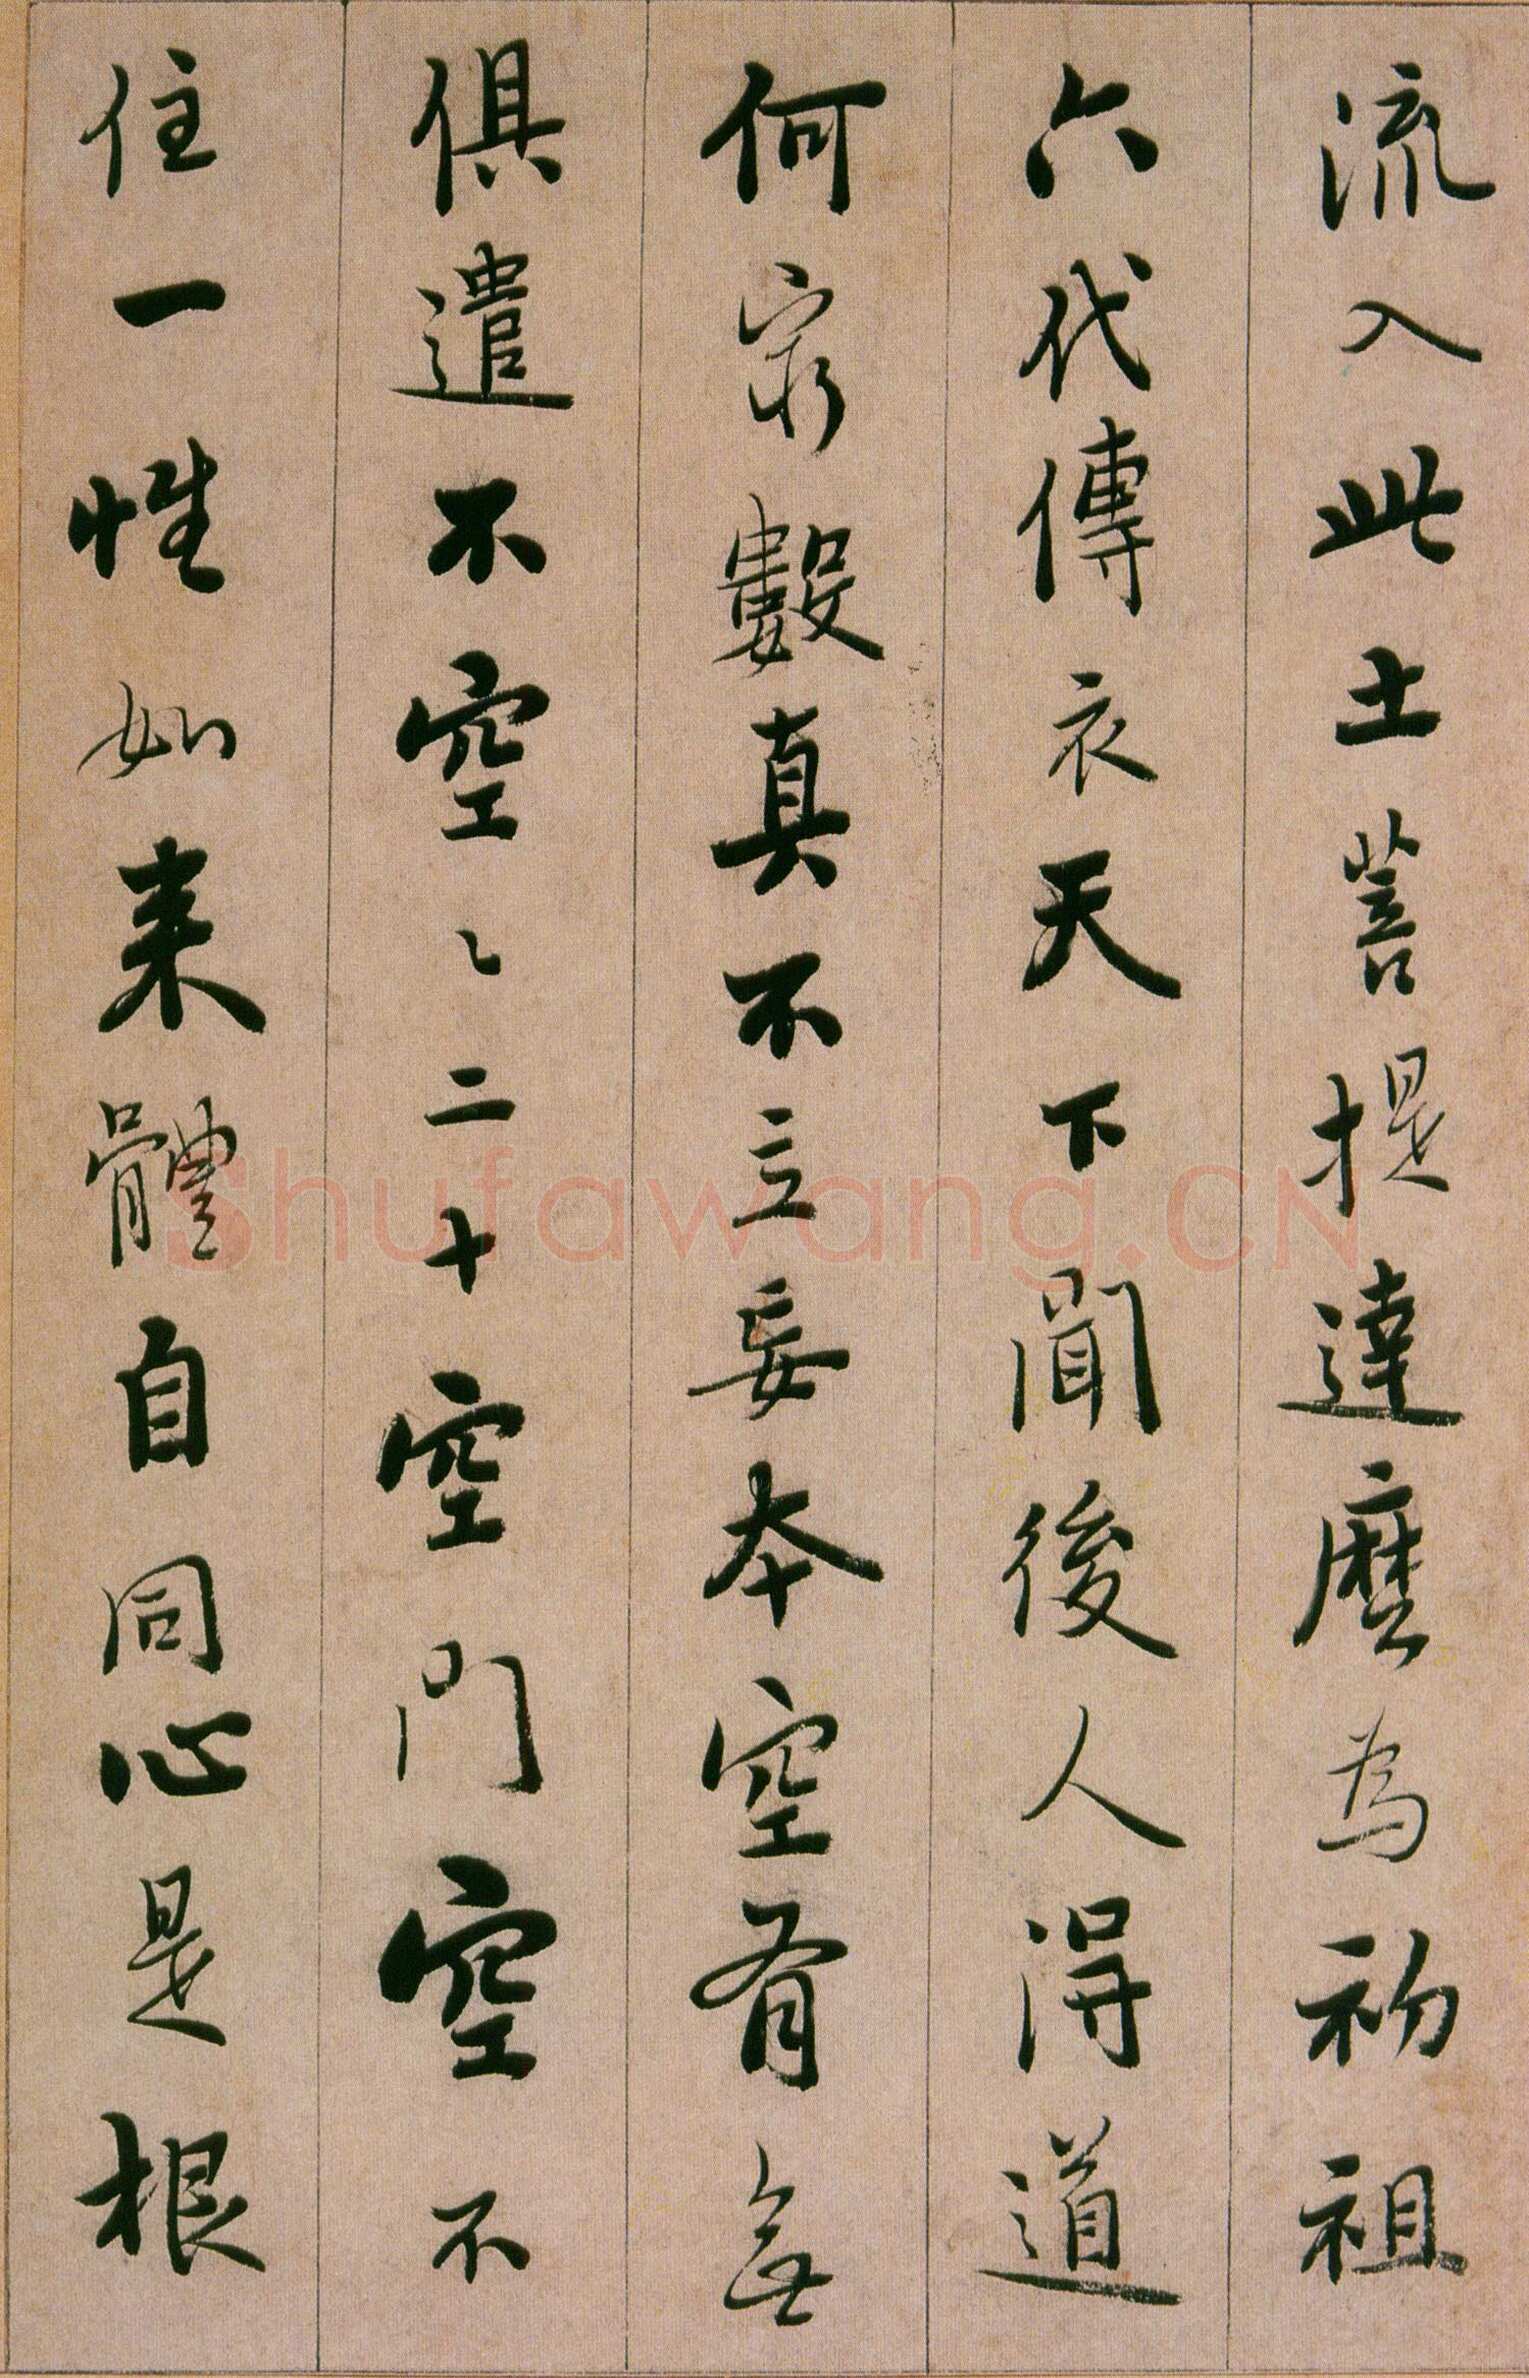 流入此土菩提達麼為初祖
六代傳衣天下聞後人得道
何窮數真不立妄本空有無
俱遣不空〻二十空門空不
住一性如来體自同心是根
Shufawang.CN